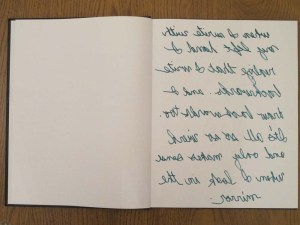 when I write with
my left hand I
realize that I write
backwards. and I
draw backwards too.
It's all so so weird
and only makes sense
when I look in the
mirror.